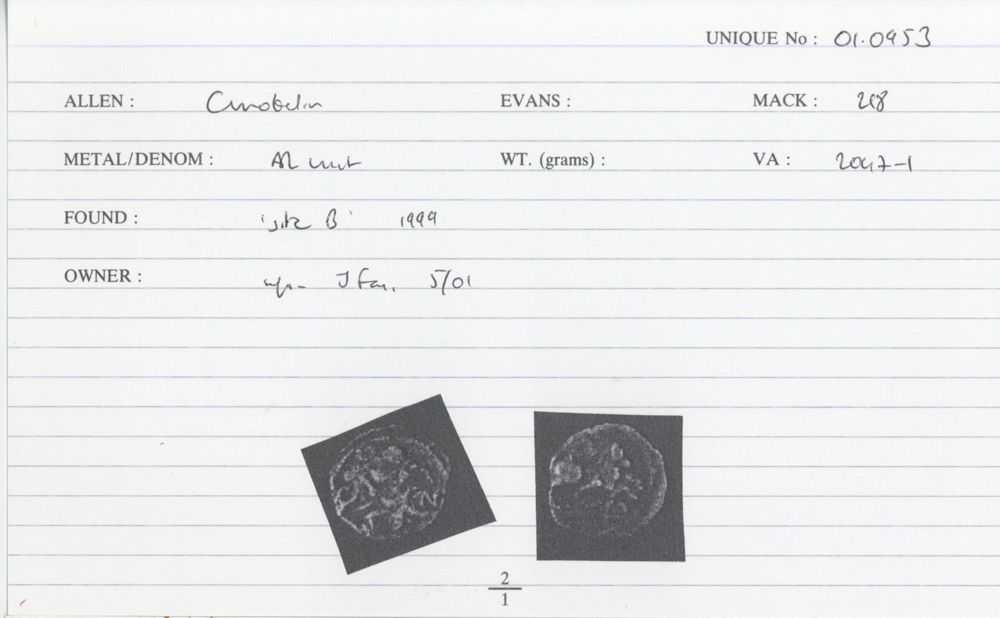 UNIQUE No : 01.0953
ALLEN : Cunobelin EVANS : MACK : 218
METAL/DENOM : AR unit WT. (grams) : VA : 2047-1
FOUND : 'site B' 1999
OWNER : 5/01
2
1